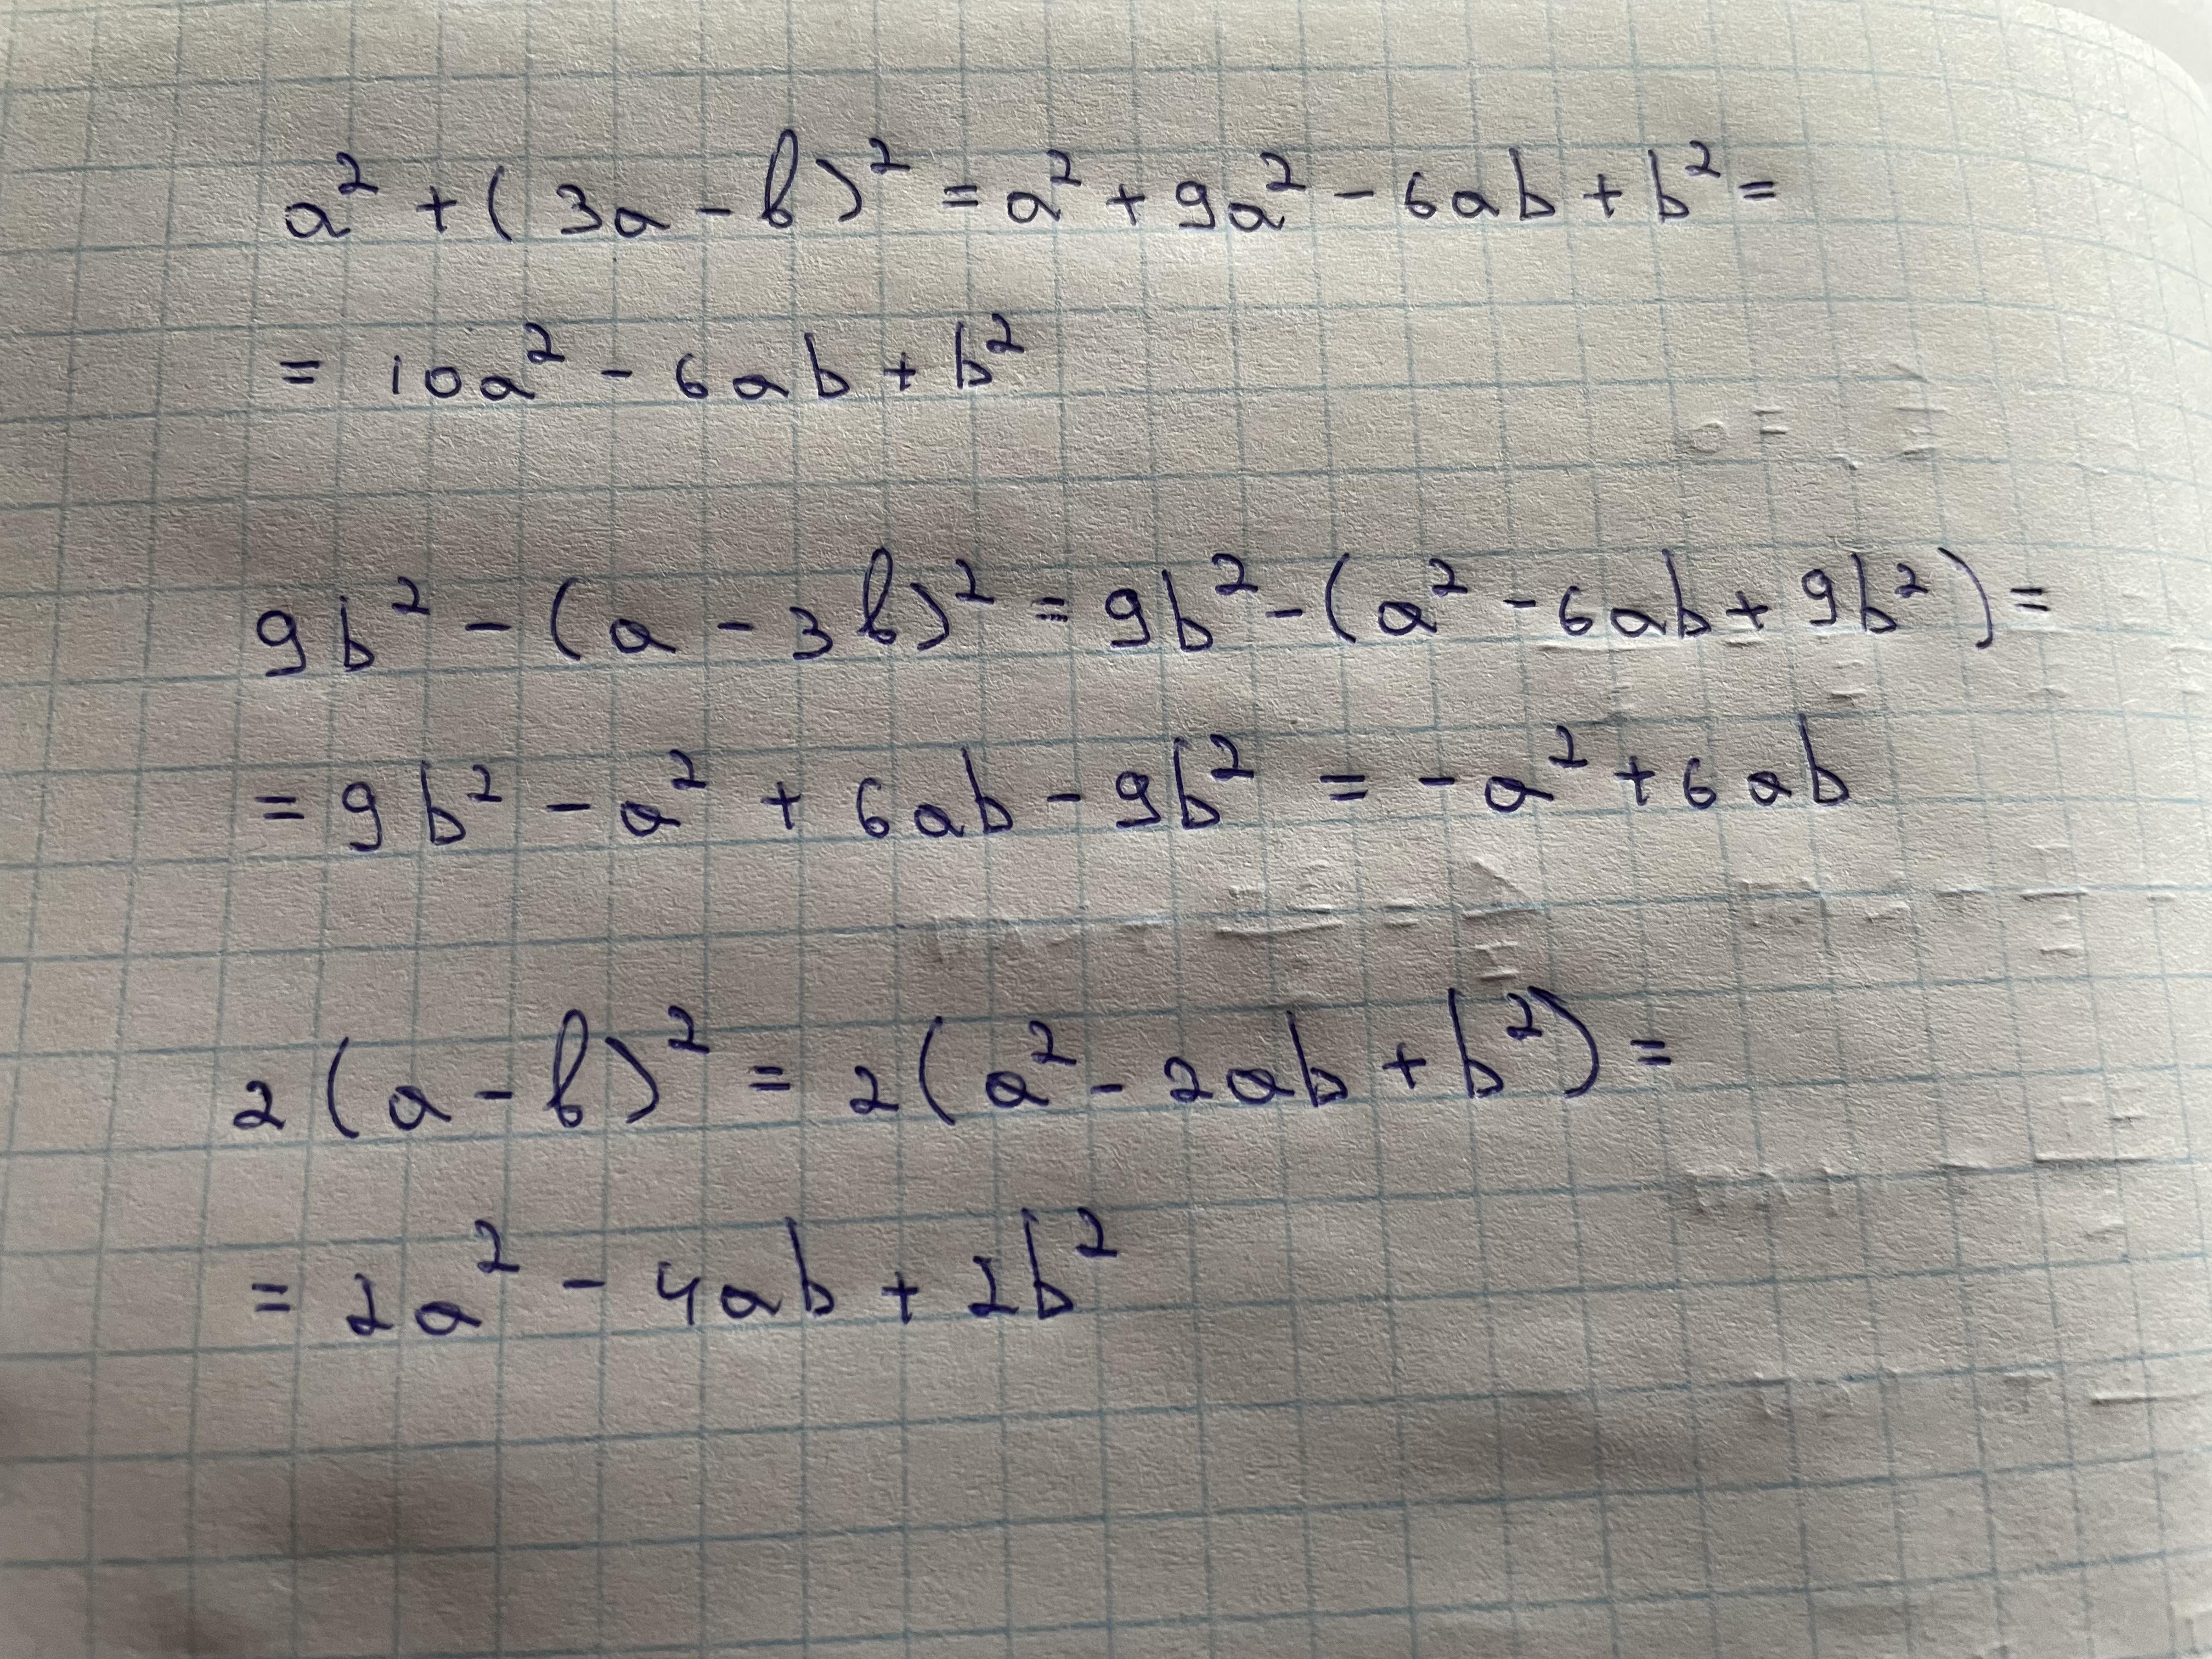 a² + (3a - b)² = a² + 9a² - 6ab + b² =
= 10a² - 6ab + b²
9b² - (a - 3b)² = 9b² - (a² - 6ab + 9b²) =
= 9b² - a² + 6ab - 9b² = -a² + 6ab
2(a - b)² = 2(a² - 2ab + b²) =
= 2a² - 4ab + 2b²